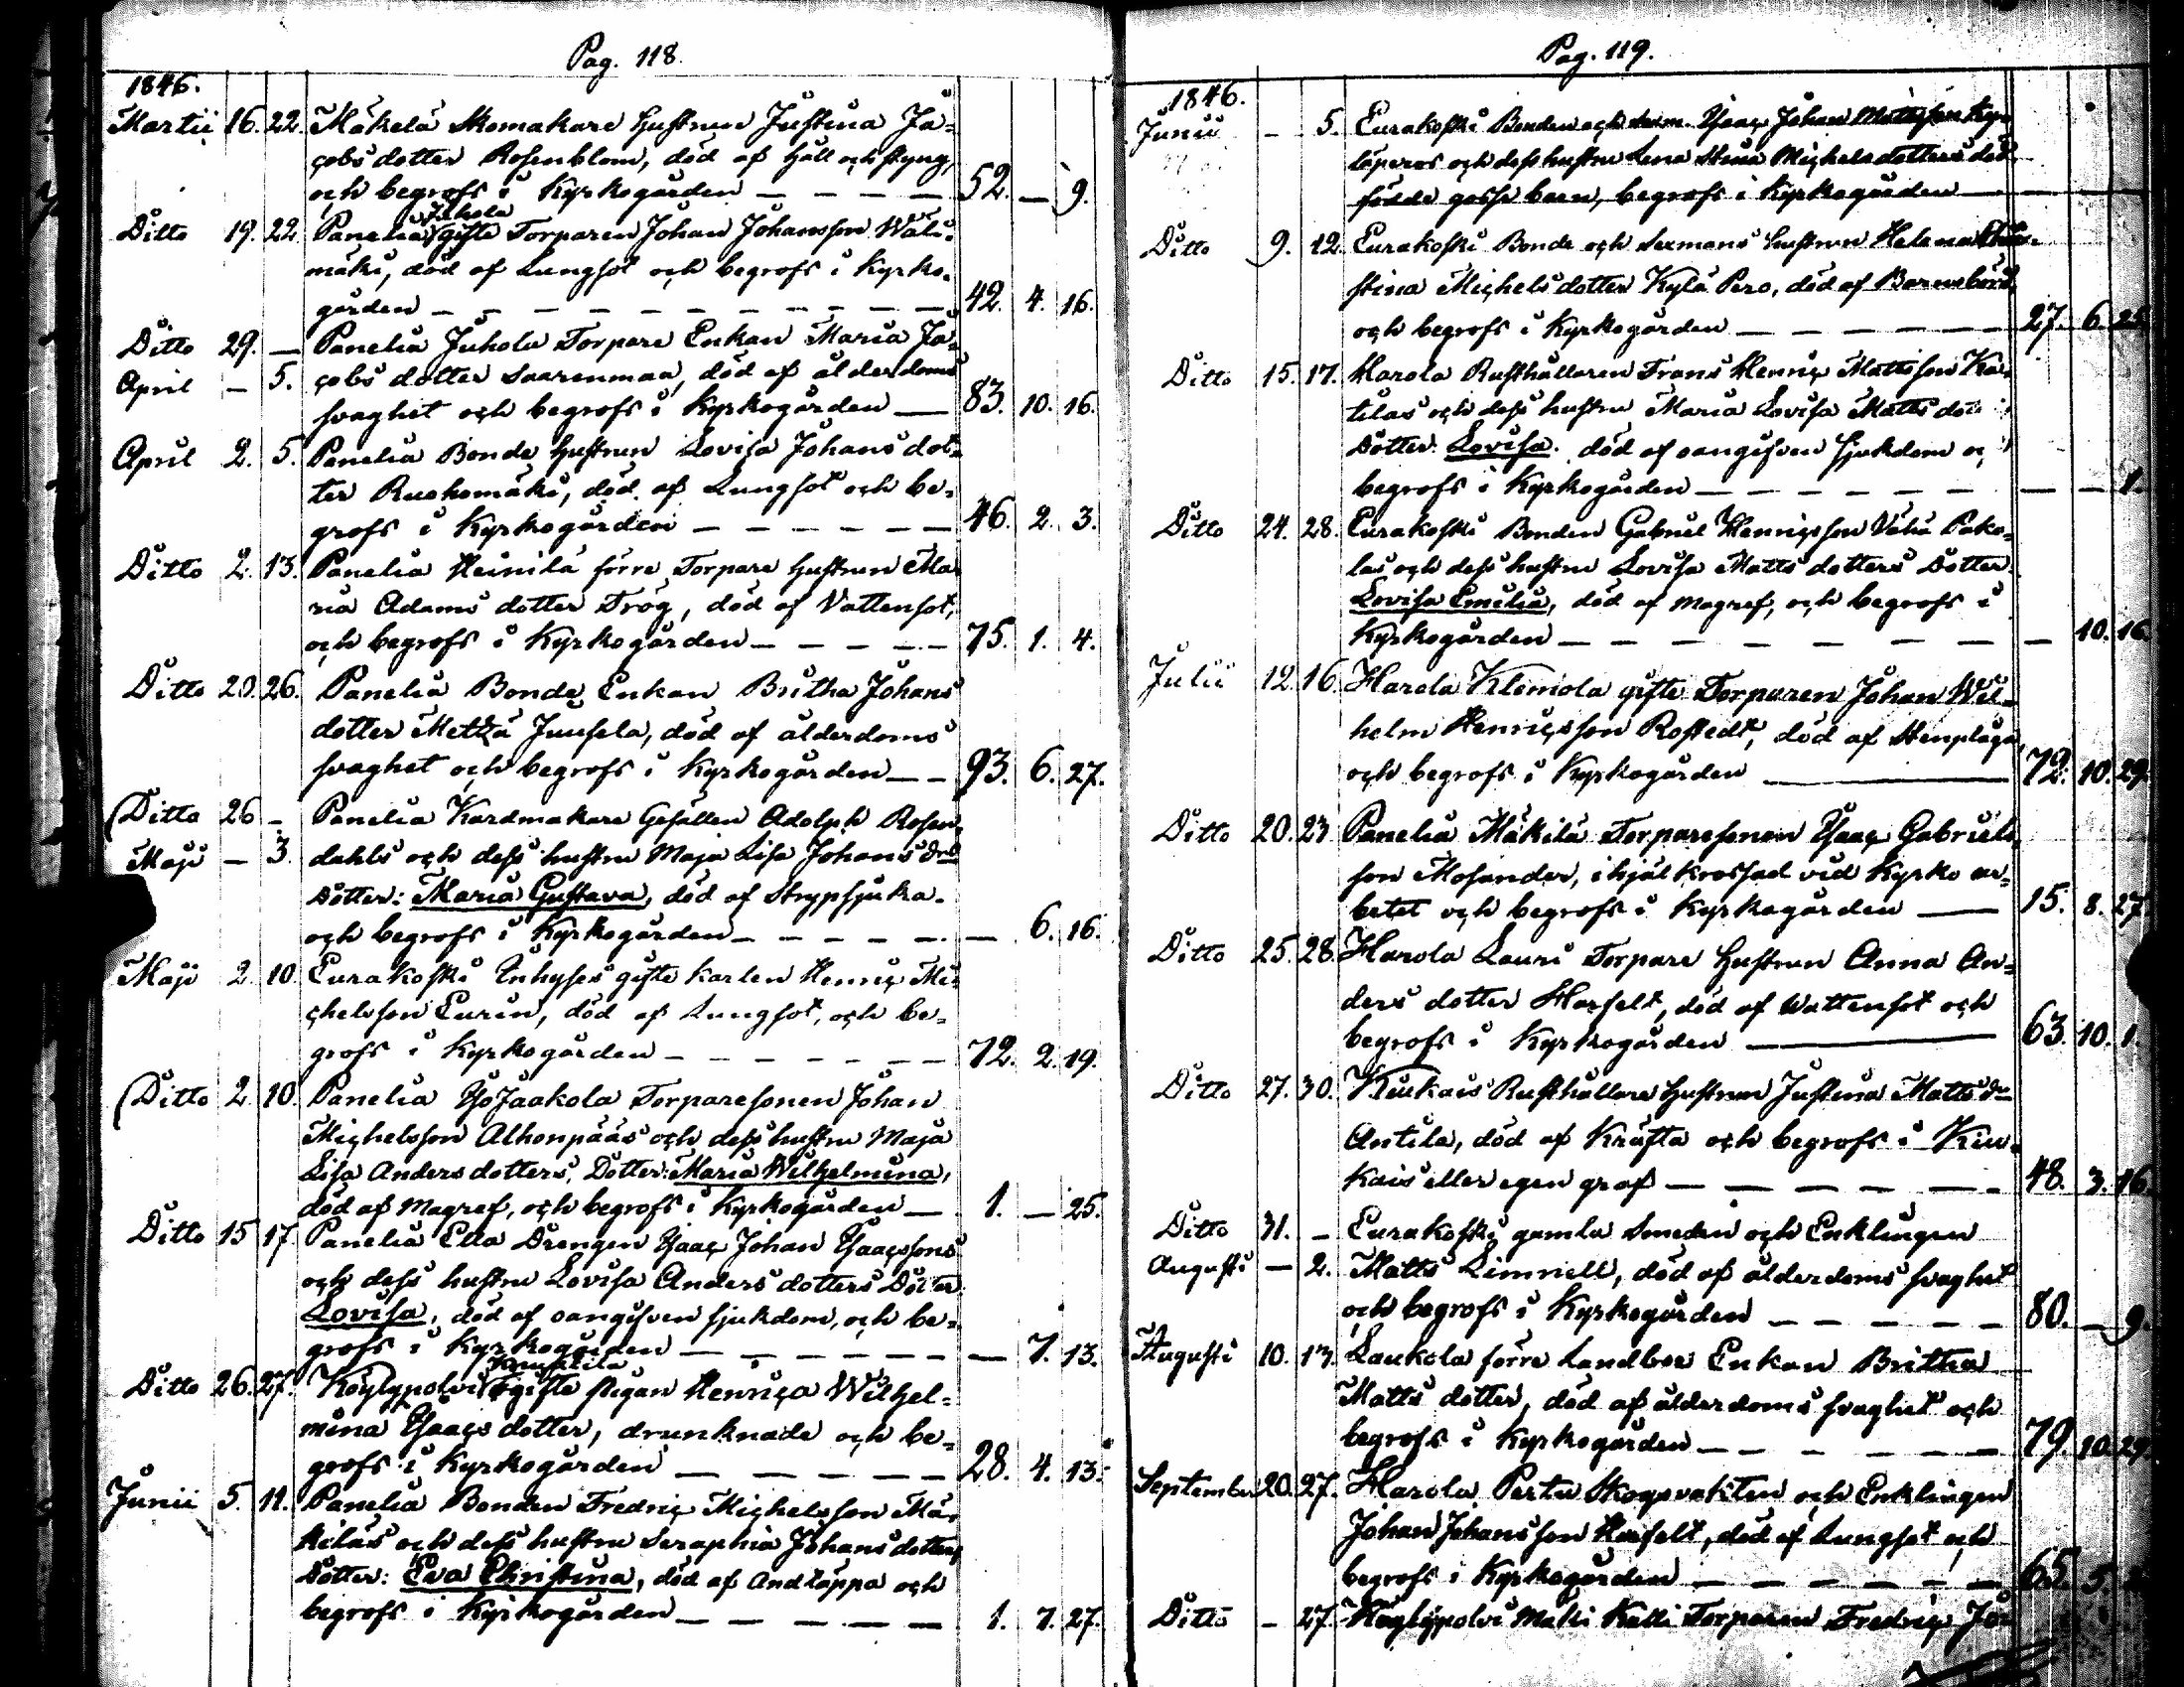 Pag. 118.
1846.
Martii 16. 22. Mäkelä Skomakare Hustrun Justina Ja-
cobs dotter Rosenblom, död af håll och styng,
och begrofs i Kyrkogården — — — — 52. — 9.
Juhola
Ditto 19. 22 Panelia gifte Torparen Johan Johansson Wäli-
mäki, död af Lungsot och begrofs i Kyrko-
gården — — — — — — — — — 42. 4. 16.
Ditto 29. — Panelia Juhola Torpare Enkan Maria Ja-
April — 5. cobs dotter Saarenmaa, död af ålderdoms
svaghet och begrofs i Kyrkogården — 83. 10. 16.
April 2. 5. Panelia Bonde Hustrun Lovisa Johans dot-
ter Ruohomäki, död af Lungsot och be-
grofs i Kyrkogården — — — — — 46. 2. 3.
Ditto 2. 13. Panelia Heinilä förre Torpare Hustrun Ma-
ria Adams dotter Trög, död af Vattensot,
och begrofs i Kyrkogården — — — — 75. 1. 4.
Ditto 20. 26. Panelia Bonde Enkan Britha Johans
dotter Juusela, död af ålderdoms
svaghet och begrofs i Kyrkogården — — 93. 6. 27.
Ditto 26 — Panelia Kardmakare Gesällen Adolph Rosen-
Maji — 3 dahls och dess hustru Maja Lisa Johans drs
Dotter: Maria Gustava, död af Strypsjuka.
och begrofs i Kyrkogården — — — — — 6. 16.
Maji 2 10. Eurakoski Inhyses gifte karlen Henric Mi-
chelsson Eurin, död af Lungsot, och be-
grofs i Kyrkogården — — — — — — 72. 2. 19.
Ditto 2 10. Panelia Yso Jaakola Torparesonen Johan
Michelsson Alhonpääs och dess hustru Maja
Lisa Anders dotters, Dotter: Maria Wilhelmina,
död af Magref, och begrofs i Kyrkogården — 1. — 25.
Ditto 15 17 Panelia Eka Drengen Ysaac Johan Ysaacssons
och dess hustru Lovisa Anders dotters Dotter
Lovisa, död af oangifven sjukdom, och be-
grofs i Kyrkogården — — — — — — 7. 13.
Ditto 26. 27. Köylypolvi ogifte pigan Henrica Wilhel-
mina Ysaacs dotter, drunknade och be-
grofs i Kyrkogården — — — — — 28. 4. 13.
Junii 5. 11. Panelia Bonden Fredric Michelsson Mä-
kiläs och dess hustru Seraphia Johans dotters
Dotter: Eva Christina, död af Andtäppa och
begrofs i Kyrkogården — — — — — 1. 7. 27.
Pag. 119.
1846.
Junii — 5. Eurakoski Bonden och Ysaac Johan Mattsson Ky-
läperos och dess hustru Lena Stina Michels dotters död
födde gosse barn, begrofs i Kyrkogården —
Ditto 9. 12. Eurakoski Bonde och Sexmans hustrun Helena
stina Michels dotter Kylä Pero, död af Barnsbörd,
och begrofs i Kyrkogården — — — — — 27. 6. 25.
Ditto 15. 17. Harola Rusthållaren Frans Henric Mattsson Ka-
tilas och dess hustru Maria Lovisa Matts
Dotter: Lovisa. död af oangifven sjukdom
begrofs i Kyrkogården — — — — — — — — 1.
Ditto 24. 28. Eurakoski Bonden Gabriel Henricsson Väliä Pako-
las och dess hustru Lovisa Matts dotters Dotter
Lovisa Emilia, död af magref, och begrofs i
Kyrkogården — — — — — — — — 10. 16.
Julii 12. 16. Harola Klemola gifte Torparen Johan Wil-
helm Henricsson Rostedt, död af Stenplåga,
och begrofs i Kyrkogården — 72. 10. 29.
Ditto 20. 23 Panelia Mäkilä Torparesonen Ysaac Gabriels
son Mosander, ihjäl krossad vid Kyrko ar-
betet och begrofs i Kyrkogården — 15. 8. 27
Ditto 25. 28. Harola Lauri Torpare Hustrun Anna An-
ders dotter Harfelt, död af Wattensot och
begrofs i Kyrkogården — 63. 10. 1.
Ditto 27. 30. Kiukais Rusthållare Hustrun Justina Matts dr
Antila, död af Kräfta och begrofs i Kiu-
kais eller egen graf — — — — — 48. 3. 16.
Ditto 31. — Eurakoski gamla Smeden och Enklingen
Augusti — 2. Matts Limnell, död af ålderdoms svaghet
och begrofs i Kyrkogården — — — — — 80. — 9.
Augusti 10. 13. Laukola förre Landboe Enkan Britha
Matts dotter, död af ålderdoms svaghet och
begrofs i Kyrkogården — — — — — 79. 10. 29.
September 20. 27. Harola Pertu Skogsvakten och Enklingen
Johan Johansson Harfelt, död af Lungsot och
begrofs i Kyrkogården — — — — — — 65. 5.
Ditto — 27. Köylypolvi Matti Katti Torparen Fredric Jo-